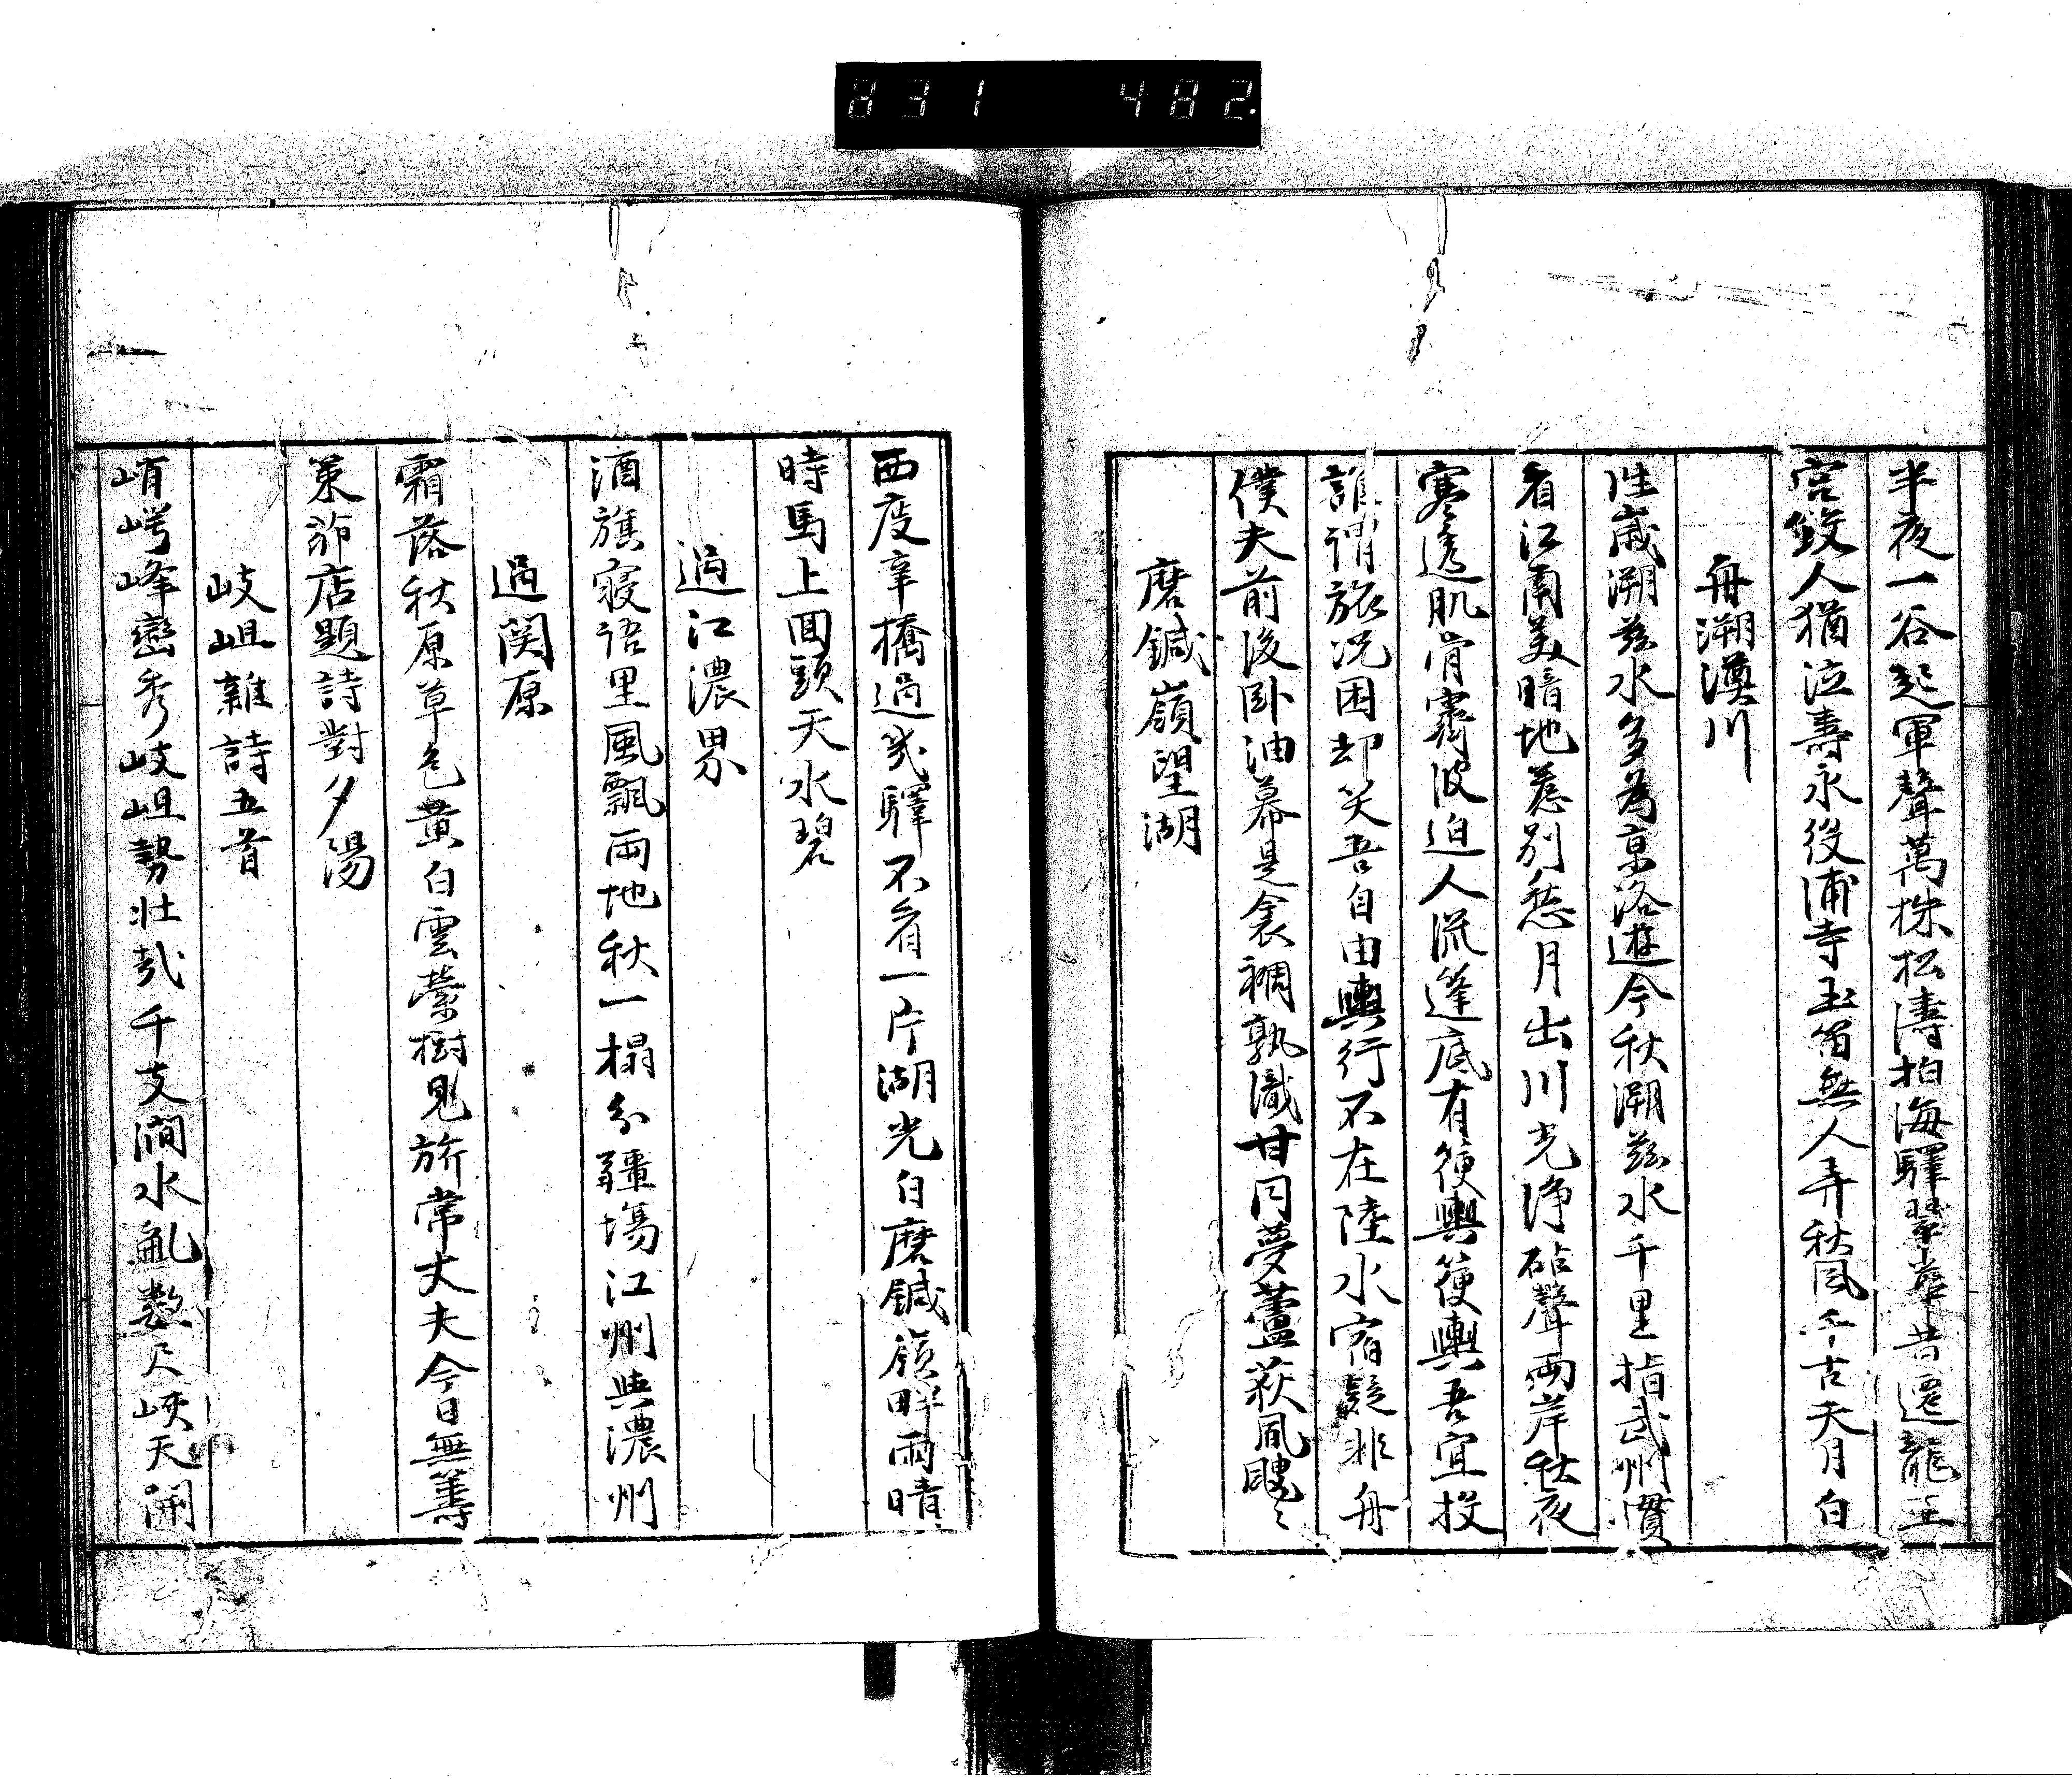 831 482.
半夜一谷起軍聲萬株松濤拍海驛翠華昔遷龍王
宮釣人猶泣壽永役浦寺玉笛無人弄秋風千古天月白
舟溯澱川
往歲溯茲水多爲京洛遊今秋溯茲水千里指武州慣
看江南美暗地惹別愁月出川光浄砧聲兩岸秋夜
寒透肌骨霽波迫人流篷底有箯輿箯輿吾宜投
誰謂旅況困却笑吾自由輿行不在陸水宿疑非舟
僕夫前後臥油幕是衾裯孰識甘同夢蘆荻風颼々
磨鍼嶺望湖
西度幸橋過幾驛不看一片湖光白磨鍼嶺畔雨晴
時馬上回頭天水碧
過江濃界
酒旗寢語里風飄兩地秋一榻分疆埸江州與濃州
過関原
霜落秋原草色黄白雲縈樹見旂常丈夫今日無籌
策茆店題詩對夕陽
岐岨雜詩五首
崢㟧峰巒秀岐岨勢壮哉千支澗水亂數尺峽天開